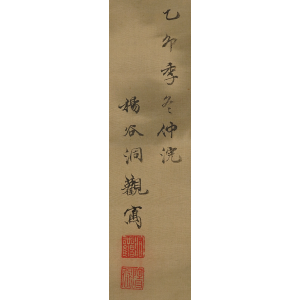 乙卯季冬仲浣
楊谷洞觀寫